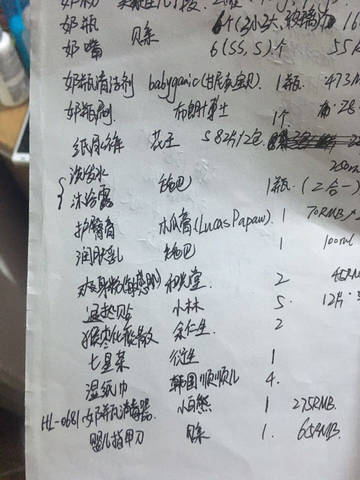 奶瓶 6个(3小3大,玻璃
奶嘴 贝亲 6(SS,S)个 55
奶瓶清洁剂 babyganic(甘尼克宝贝) 1瓶 473m
奶瓶刷 布朗博士 1个
纸尿裤 花王 S82片/2包
洗发水
沐浴露 1瓶.(2合一)
护臀膏 木瓜膏(Lucas Papaw) 1 70RMB/
润肤乳 1 100ml
和光堂 2
退热贴 小林 5. 12片
猴枣化痰散 余仁生 2
七星茶 衍生 1
湿纸巾 韩国顺顺儿 4.
HL-0681奶瓶消毒器 小白熊 1 275RMB.
婴儿指甲刀 贝亲 1. 65RMB.